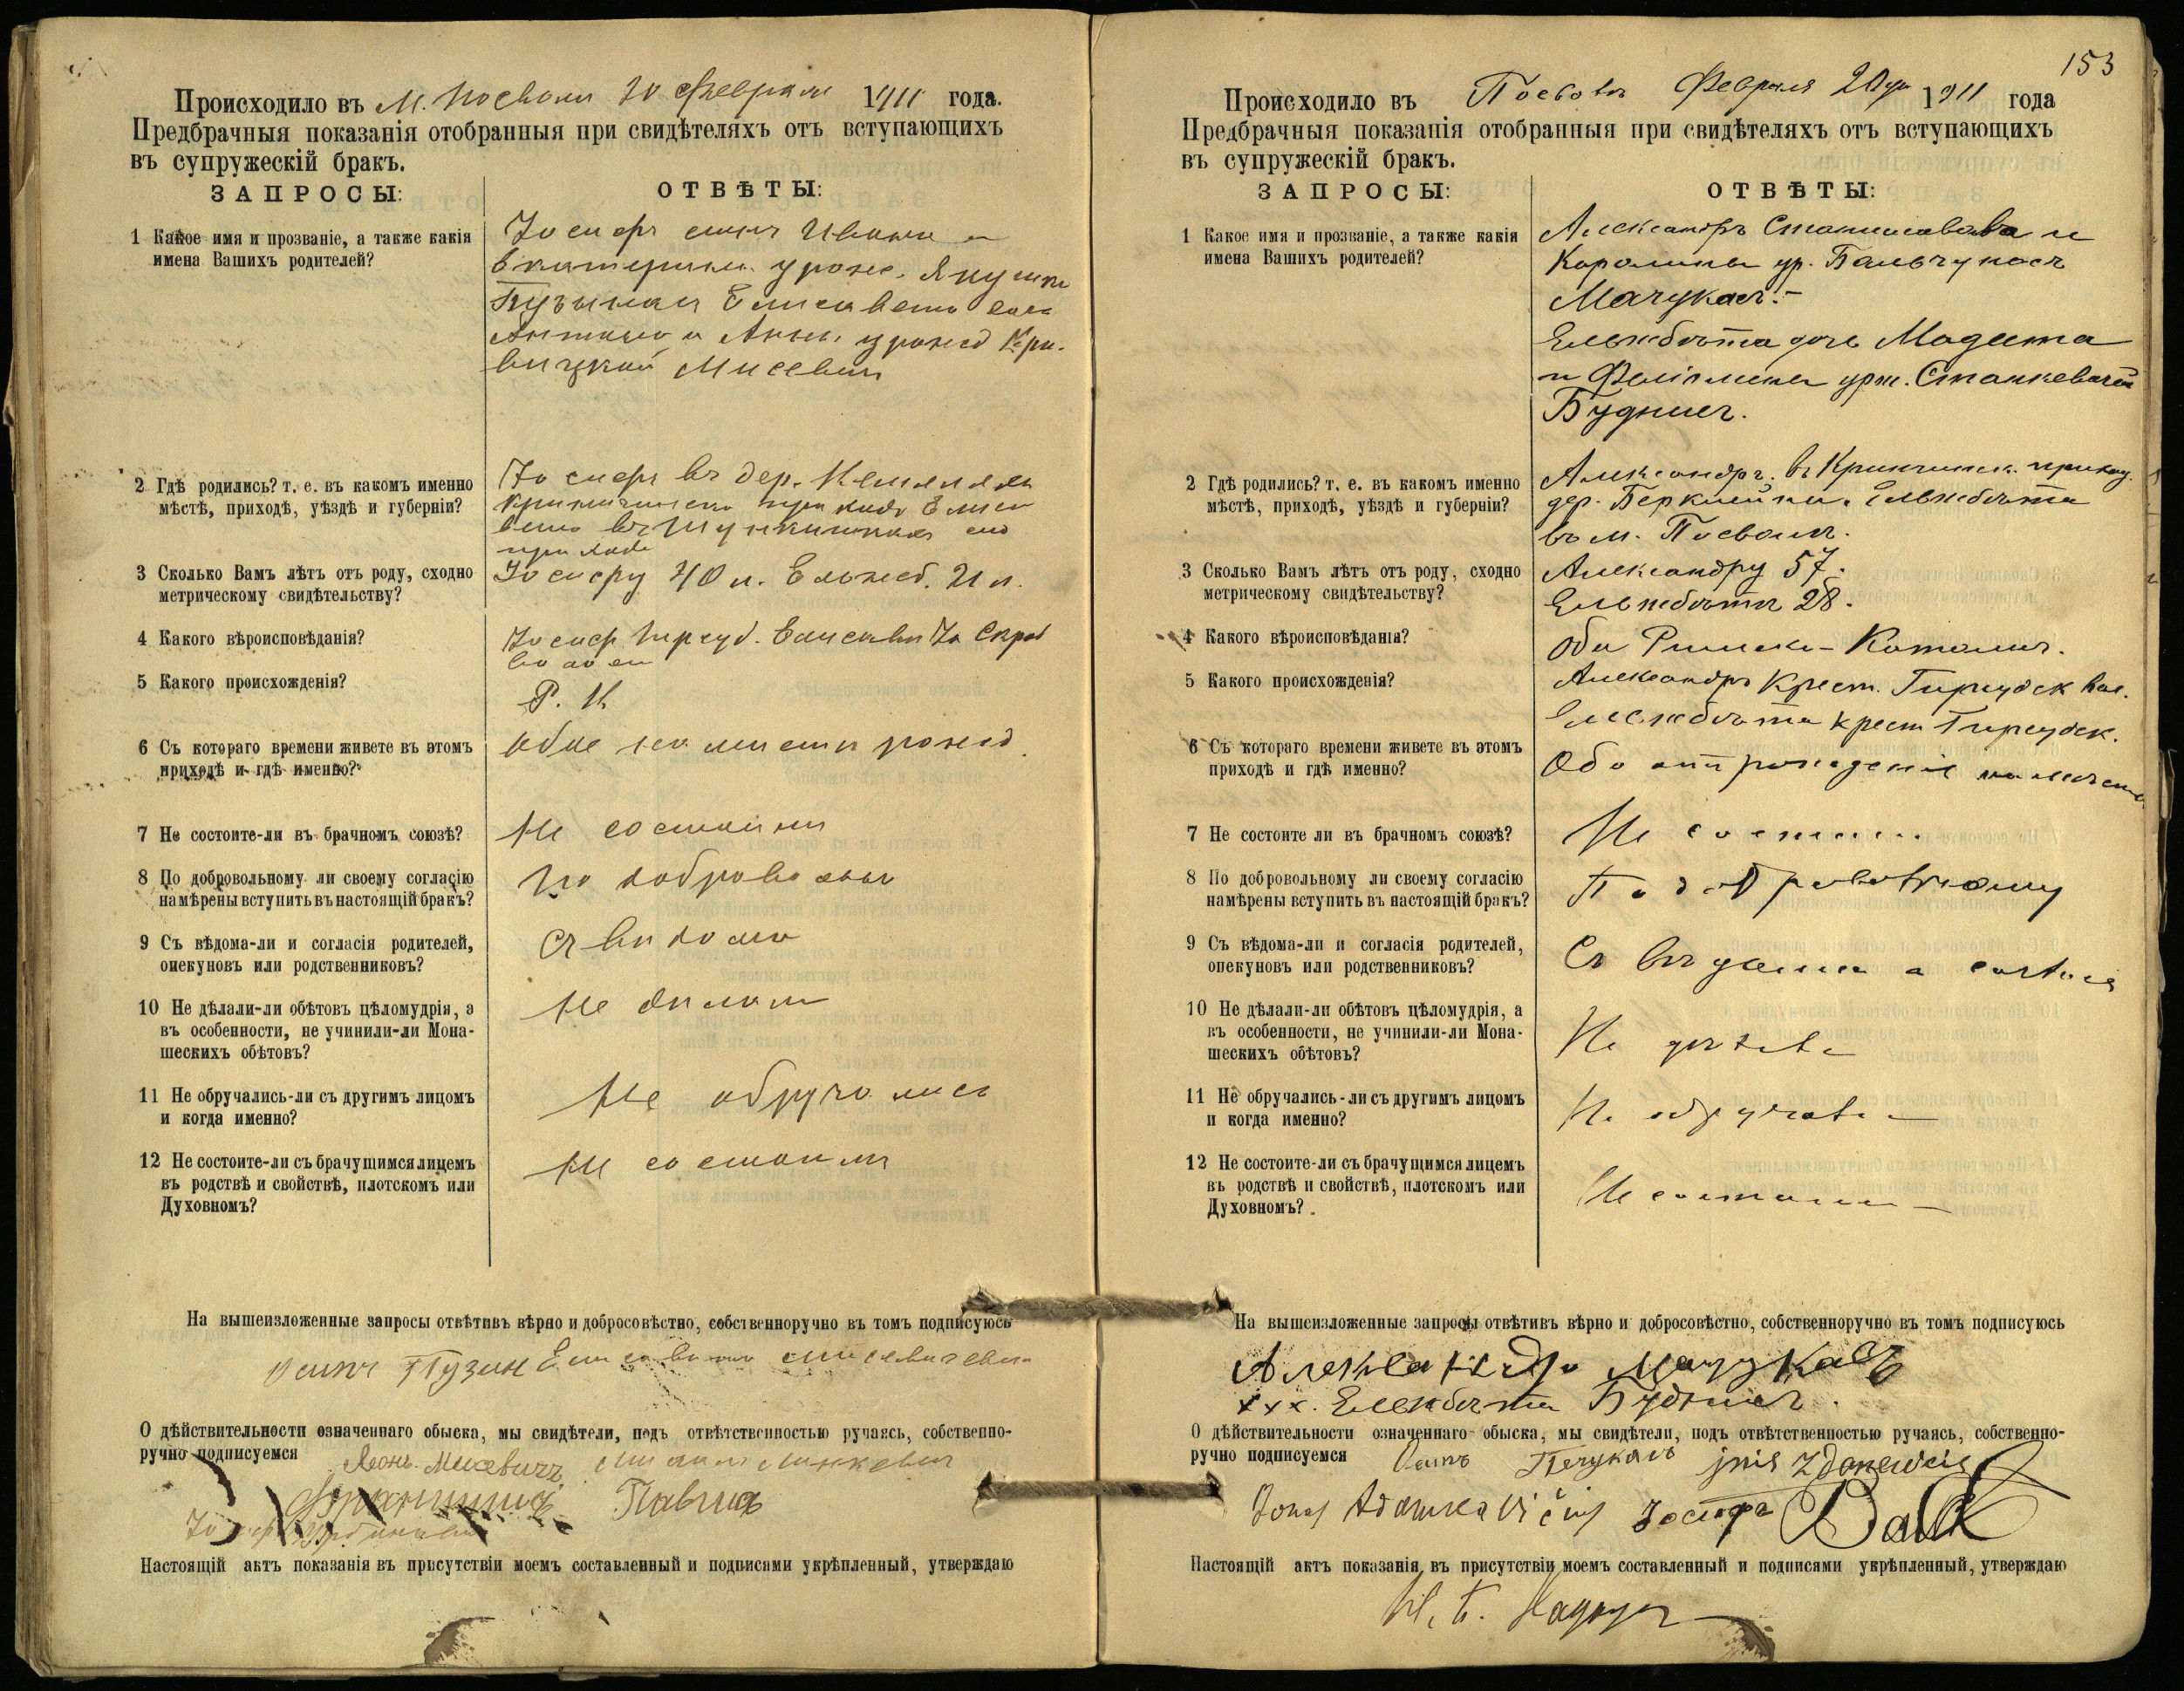 Происходило въ М. Посволи 20 Февраля 1911 года.
Предбрачныя показанія отобранныя при свидѣтеляхъ отъ вступающихъ
въ супружескій бракъ.
ЗАПРОСЫ:
ОТВѢТЫ:
1 Какое имя и прозваніе, а также какія
имена Вашихъ родителей?
Іосифъ сынъ Ивана и
Екатерины урожд.
Антона и Анны урожд Кри-
вицкой Мисевич
2 Гдѣ родились? т. е. въ какомъ именно
мѣстѣ, приходѣ, уѣздѣ и губерніи?
Іосифъ въ дер.
приход
3 Сколько Вамъ лѣтъ отъ роду, сходно
метрическому свидѣтельству?
Іосифу 40 л. Ельжб. 21 л.
4 Какого вѣроисповѣданія?
5 Какого происхожденія?
Р. К.
6 Съ котораго времени живете въ этомъ
приходѣ и гдѣ именно?
обое на мѣстѣ рожд
7 Не состоите-ли въ брачномъ союзѣ?
Не состоимъ
8 По добровольному ли своему согласію
намѣрены вступить въ настоящій бракъ?
По добровольн
9 Съ вѣдома-ли и согласія родителей,
опекуновъ или родственниковъ?
Съ вѣдома
10 Не дѣлали-ли обѣтовъ цѣломудрія, а
въ особенности, не учинили-ли Мона-
шескихъ обѣтовъ?
Не дѣлали
11 Не обручались-ли съ другимъ лицомъ
и когда именно?
Не обручались
12 Не состоите-ли съ брачущимся лицемъ
въ родствѣ и свойствѣ, плотскомъ или
Духовномъ?
Не состоимъ
На вышеизложенные запросы отвѣтивъ вѣрно и добросовѣстно, собственноручно въ томъ подписуюсь
Осипъ Пузин
О дѣйствительности означеннаго обыска, мы свидѣтели, подъ отвѣтственностью ручаясь, собственно-
ручно подписуемся
Мисевичъ
Настоящій актъ показанія въ присутствіи моемъ составленный и подписями укрѣпленный, утверждаю
153
Происходило въ Посволѣ Февраля 20 дня 1911 года
Предбрачныя показанія отобранныя при свидѣтеляхъ отъ вступающихъ
въ супружескій бракъ.
ЗАПРОСЫ:
ОТВѢТЫ:
1 Какое имя и прозваніе, а также какія
имена Вашихъ родителей?
Александръ Станиславова и
Каролины ур. Бальчунасъ
Мачукасъ.-
Ельжбѣта дочь Модеста
и Филомены урж. Станкевичъ
Будникъ.
2 Гдѣ родились? т. е. въ какомъ именно
мѣстѣ, приходѣ, уѣздѣ и губерніи?
Александръ въ Кринчинск. приход.
дер. Ельжбѣта
въ м. Посволѣ.
3 Сколько Вамъ лѣтъ отъ роду, сходно
метрическому свидѣтельству?
Александру 57.
Ельжбѣтѣ 28.
4 Какого вѣроисповѣданія?
Оба Римско-Католич.
5 Какого происхожденія?
Александръ Крест. Гирсудск вол.
Ельжбѣта крест Гирсудск.
6 Съ котораго времени живете въ этомъ
приходѣ и гдѣ именно?
Оба отъ рожденія на мѣстѣ
7 Не состоите ли въ брачномъ союзѣ?
Не состоимъ
8 По добровольному ли своему согласію
намѣрены вступить въ настоящій бракъ?
По добровольному
9 Съ вѣдома-ли и согласія родителей,
опекуновъ или родственниковъ?
10 Не дѣлали-ли обѣтовъ цѣломудрія, а
въ особенности, не учинили-ли Мона-
шескихъ обѣтовъ?
Не дѣлали
11 Не обручались-ли съ другимъ лицомъ
и когда именно?
Не обручались
12 Не состоите-ли съ брачущимся лицемъ
въ родствѣ и свойствѣ, плотскомъ или
Духовномъ?
Не состоимъ
На вышеизложенные запросы отвѣтивъ вѣрно и добросовѣстно, собственноручно въ томъ подписуюсь
Александръ Мачукасъ
ххх. Ельжбѣта Будникъ.
О дѣйствительности означеннаго обыска, мы свидѣтели, подъ отвѣтственностью ручаясь, собственно-
ручно подписуемся Осипъ
Jonas Adamkavičius Іосифъ
Настоящій актъ показанія въ присутствіи моемъ составленный и подписями укрѣпленный, утверждаю